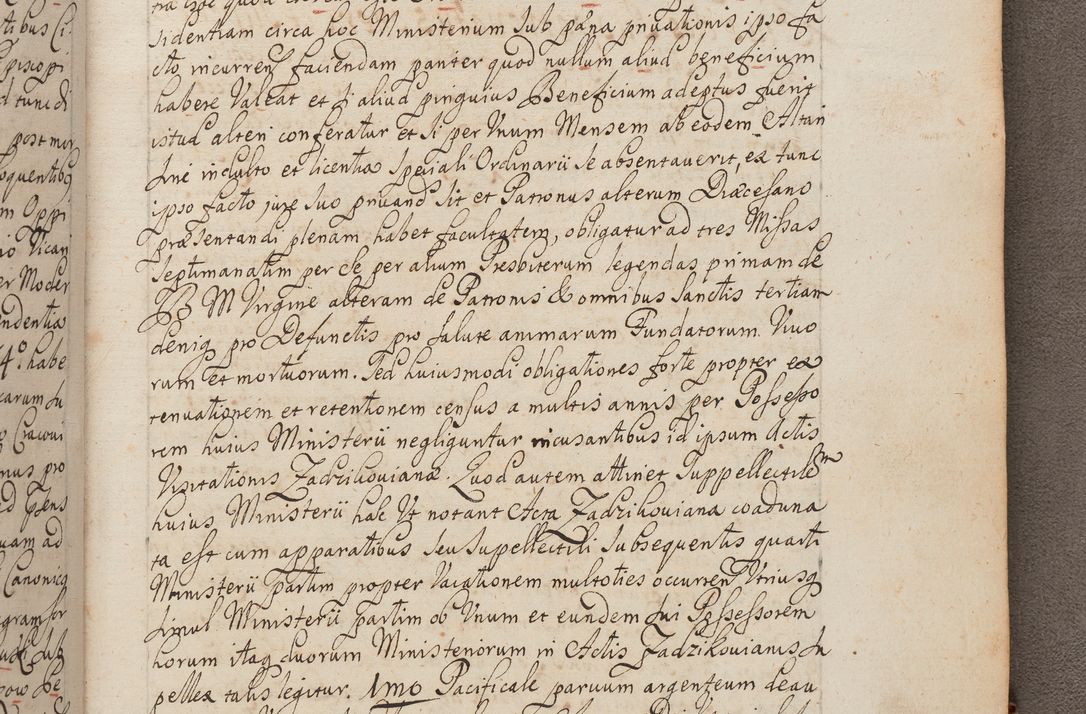 tibus Ci
piscopi
d tunc di
post mor
oquentibq
m Oppi
io Vicari
er Moder
ndentia
4º habe
carum su
Cracovi
nus pro
ad
uam ad
Canonicq
gram
sidentiam circa hoc Ministerium sub pæna privationis ipso fa
cto incurren faciendam pariter quod nullum aliud beneficium
habere Valeat et si aliud pinguius Beneficium adeptus fuerit
istud alteri conferatur et si per Unum Mensem ab eodem Altari
sine inculto et licentia speciali Ordinarii se absentaverit, ex tunc
ipso facto jure suo privand sit et Patronus alterum Diæcesano
præsentandi plenam habet facultatem, obligatur ad tres Missas
septimanatim per se per alium Presbiterum legendas primam de
B M Virgine alteram de Patronis & omnibus Sanctis tertiam
deniq pro Defunctis pro salute animarum Fundatorum Vivo
rum et mortuorum. Sed huiusmodi obligationes forte propter ex
tenuationem et retentionem census a multis annis per Possesso
rem huius Ministerii negliguntur incusantibus id ipsum Actis
Visitationis Zadzikovianæ. Quod autem attinet suppellectilem
huius Ministerii hæc Ut notant Acta Zadzikoviana coaduna
ta est cum apparatibus seu supellectili subsequentis quarti
Ministerii partim propter Vacationem multoties occurren Utriusq
simul Ministerii partim ob Unum et eundem sui Possessorem
horum itaq duorum Ministeriorum in Actis Zadzikovianis su
pellex talis legitur. 1mo Pacificale parvum argenteum deau